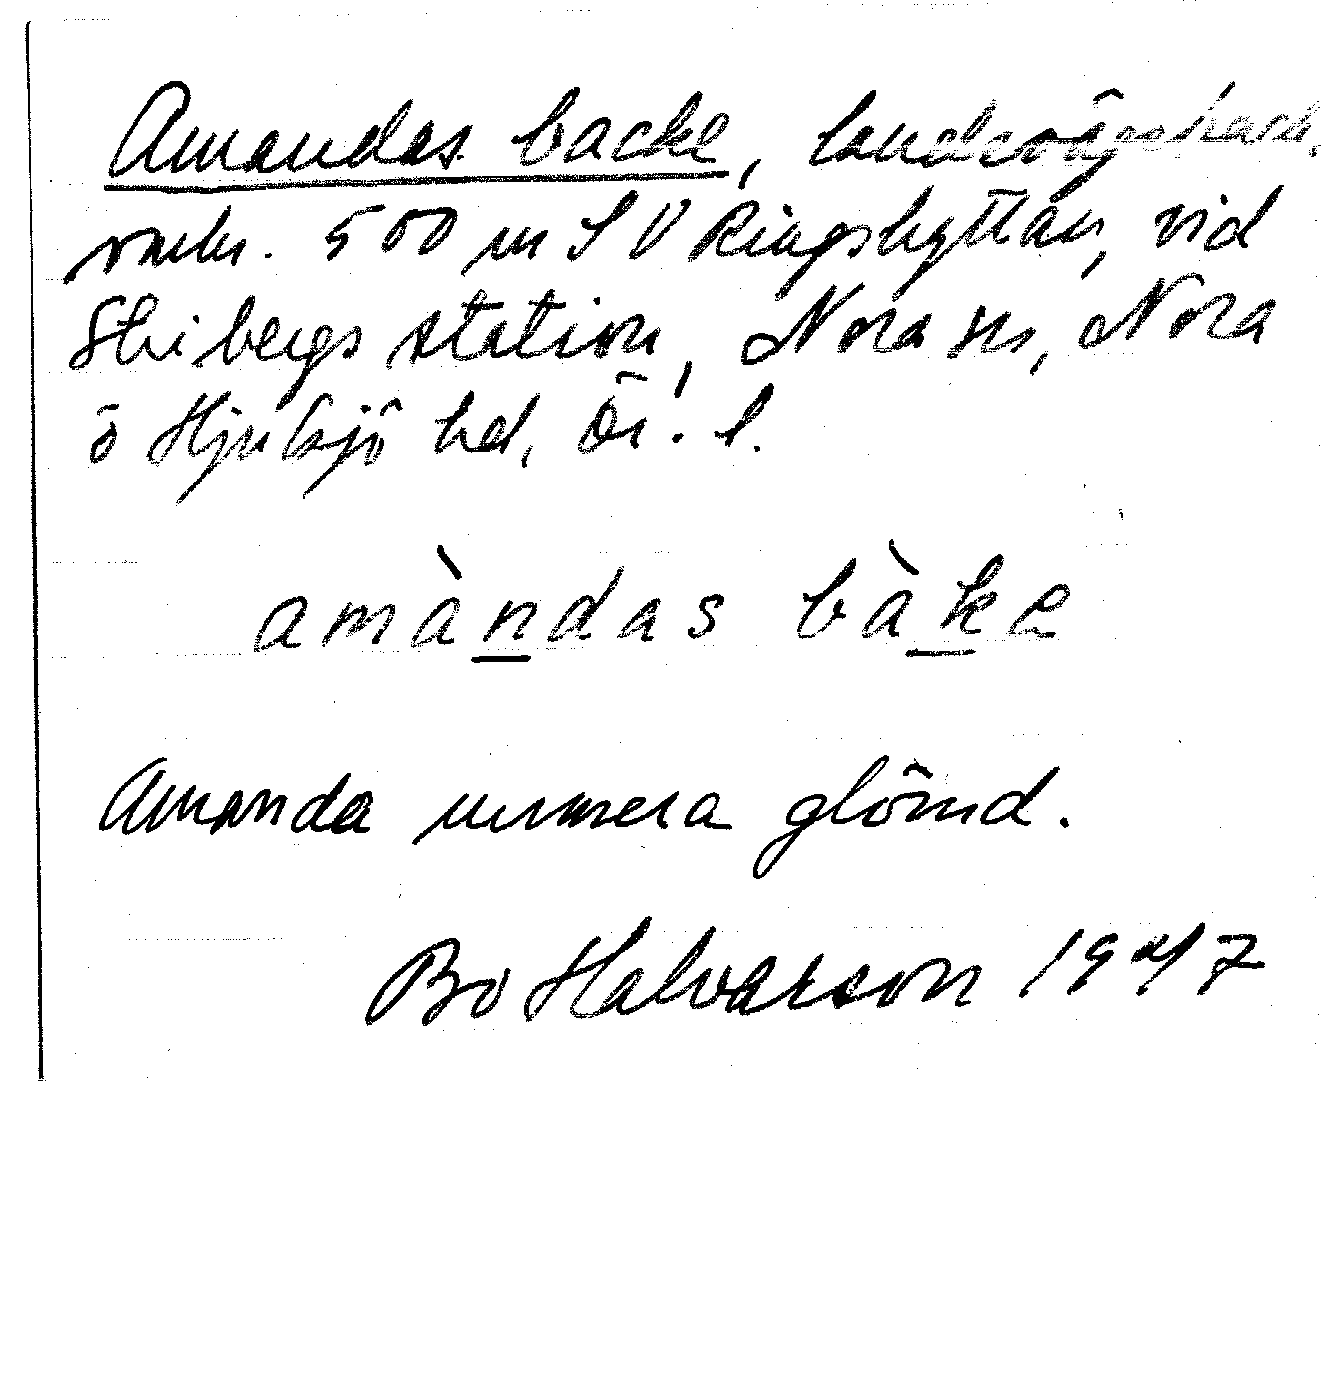 Amandas backe, landsvägsback.
omkr. 500 m SV Ringshyttan, vid
Stribergs station, Nora sn, Nora
o Hjulsjö hd, Ör. l.
amàndas bàke
Amanda numera glömd.
Bo Halvarson 1947